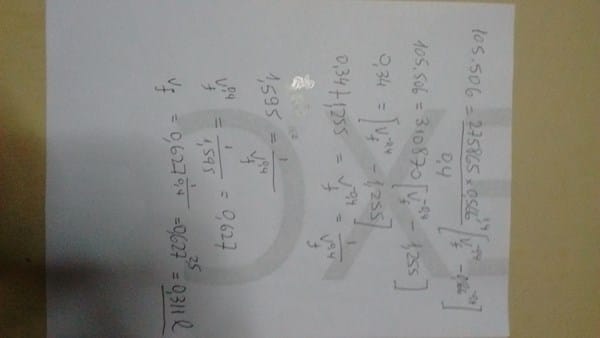 105.506 = 275865 × 0,566^1,4 / 0,4 [V_f^-0,4 - 0,566^-0,4]
105.506 = 310870 [V_f^-0,4 - 1,255]
0,34 = [V_f^-0,4 - 1,255]
0,34 + 1,255 = V_f^-0,4 = 1 / V_f^0,4
1,595 = 1 / V_f^0,4
V_f^0,4 = 1 / 1,595 = 0,627
V_f = 0,627^1/0,4 = 0,627^2,5 = 0,311 l